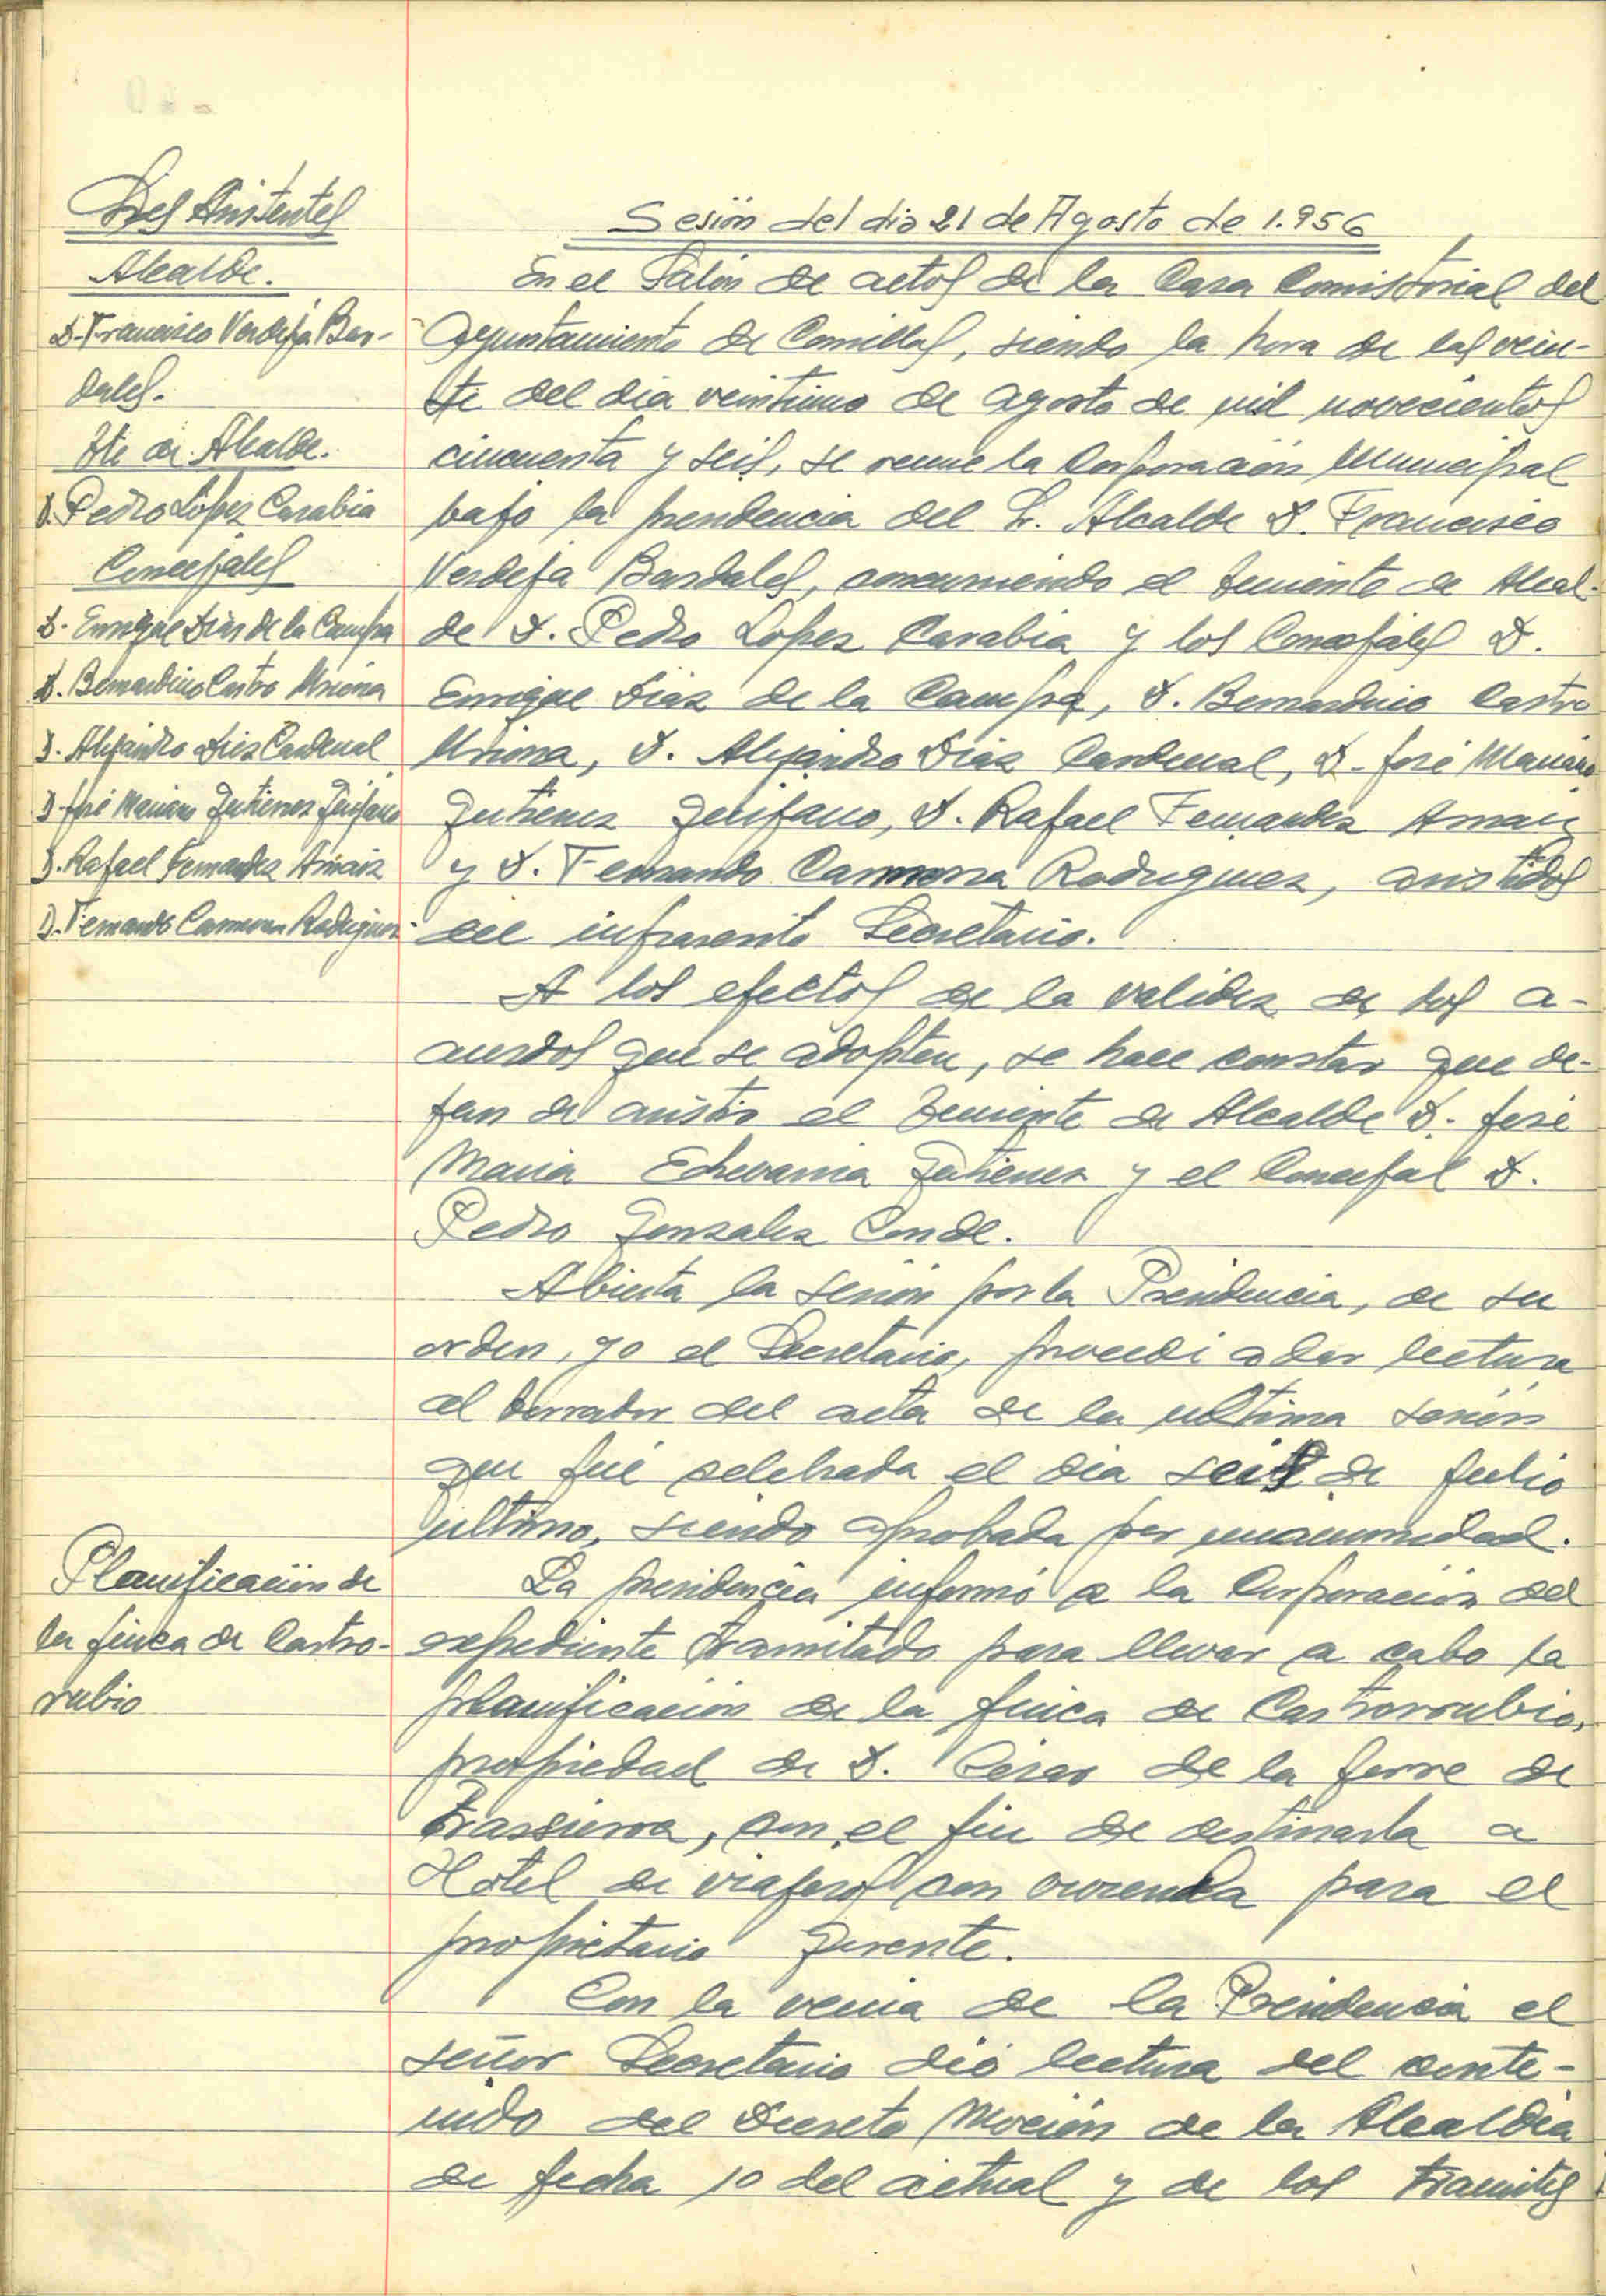 Sres Asistentes
Alcalde.
D. Francisco Verdeja Bar-
dales.
Tte de Alcalde.
D. Pedro Lopez Carabia
Concejales
D. Enrique Diaz de la Campa
D. Bernardino Castro
D. Alejandro Diez Cardenal
D. José Mariano Gutierrez
D. Rafael Fernandez Arnaiz
D. Fernando Carmona Rodriguez
Sesión del dia 21 de Agosto de 1.956
En el Salón de actos de la Casa Consistorial del
Ayuntamiento de Comillas, siendo la hora de las vein-
te del dia veintiuno de agosto de mil novecientos
cincuenta y seis, se reune la Corporación Municipal
bajo la presidencia del Sr. Alcalde D. Francisco
Verdeja Bardales, concurriendo el Teniente de Alcal-
de D. Pedro Lopez Carabia y los Concejales D.
Enrique Diaz de la Campa, D. Bernardino Castro
D. Alejandro Diaz Cardenal, D. José Mariano
Gutierrez D. Rafael Fernandez Arnaiz
y D. Fernando Carmona Rodriguez, asistidos
del infrascrito Secretario.
A los efectos de la validez de los a-
cuerdos que se adopten, se hace constar que de-
jan de asistir el Teniente de Alcalde D. José
Maria Echevarria Gutierrez y el Concejal D.
Pedro Gonzalez Conde.
Abierta la sesión por la Presidencia, de su
orden, yo el Secretario, procedi a dar lectura
al borrador del acta de la ultima sesión
que fué celebrada el dia seis de Julio
ultimo, siendo aprobada por unanimidad.
Planificación de
la finca de Castro-
rubio
La presidencia informó a la Corporación del
expediente tramitado para llevar a cabo la
planificación de la finca de Castrorrubio,
propiedad de D. Cesar de la Torre de
Trassierra, con el fin de destinarla a
Hotel de viajeros con vivienda para el
propietario Gerente.
Con la venia de la Presidencia el
señor Secretario dió lectura del conte-
nido del Decreto Moción de la Alcaldia
de fecha 10 del actual y de los tramites